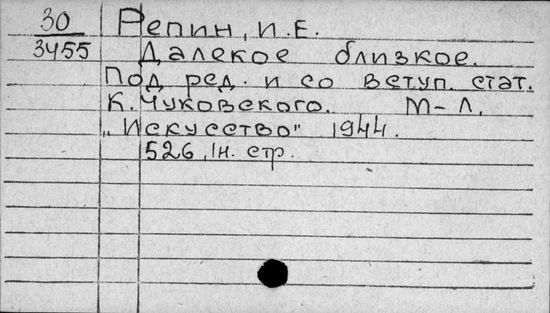 30 Репин, И.Е.
3455 Далекое близкое.
Под ред. и со вступ. стат.
К. Чуковского. М-Л,
„Искусство" 1944.
526, 1н. стр.